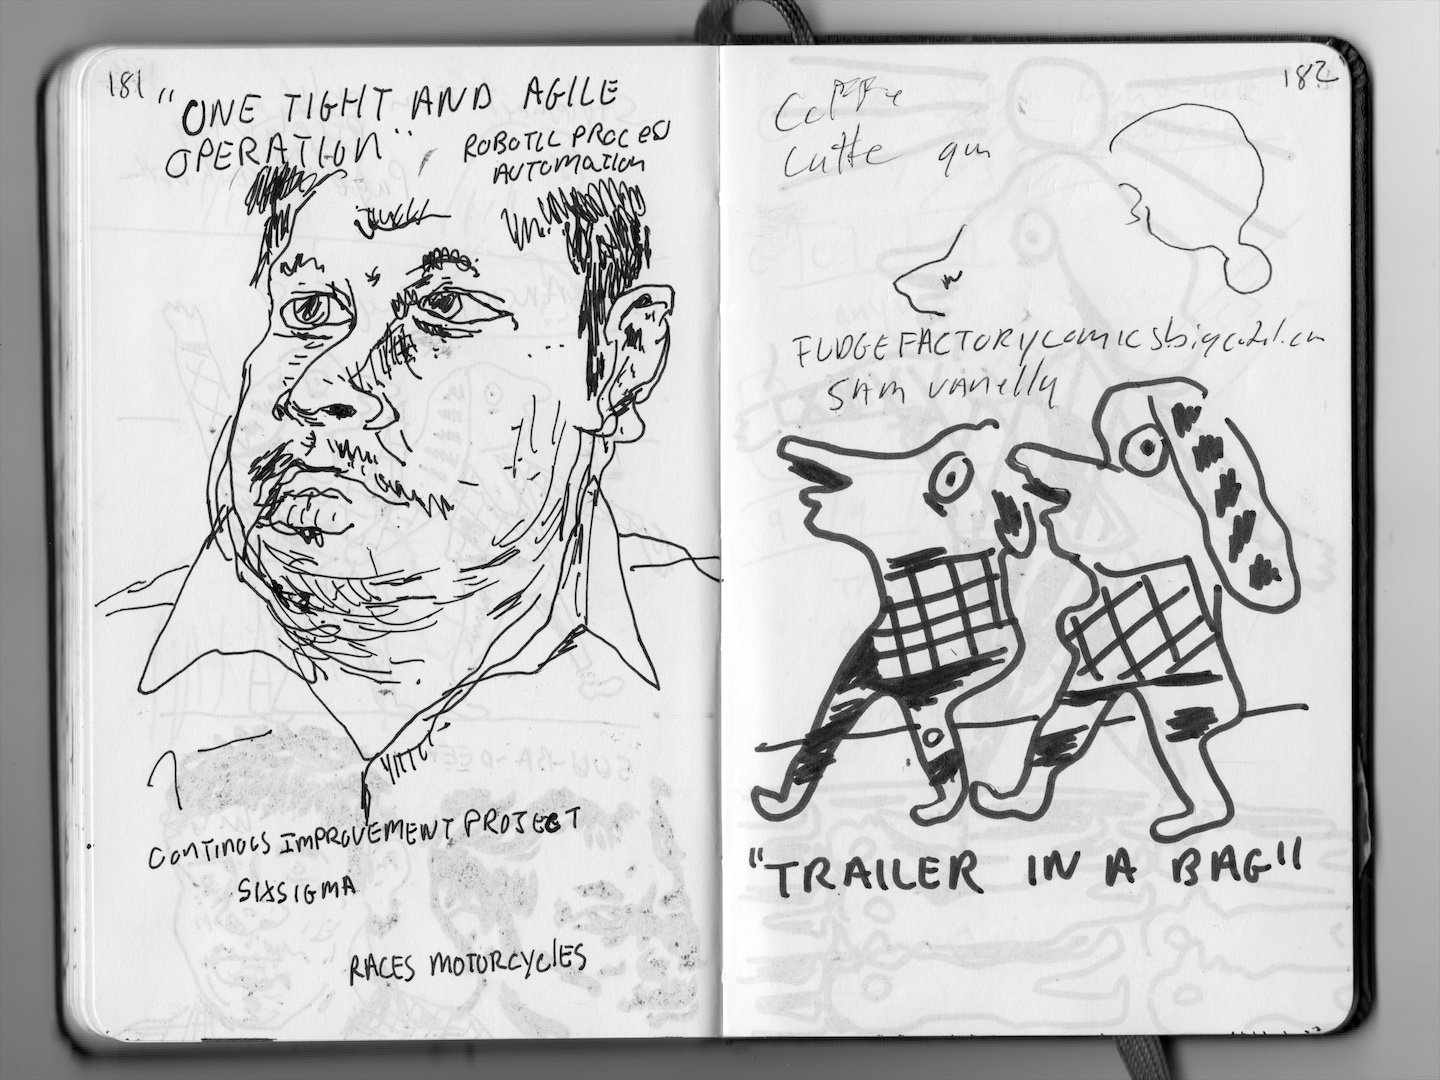 181
"ONE TIGHT AND AGILE
OPERATION"
ROBOTIC PROCESS
AUTOMATION
CONTINOUS IMPROVEMENT PROJECT
SIXSIGMA
RACES MOTORCYCLES
182
FUDGEFACTORYcomics
SAM vanelly
"TRAILER IN A BAG"